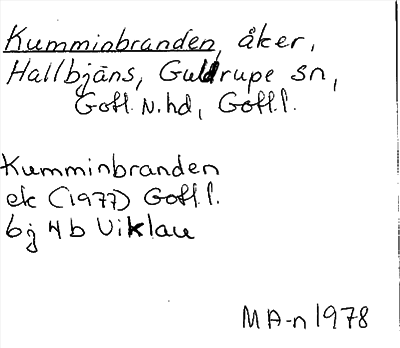 Kumminbranden, åker,
Hallbjäns, Guldrupe sn,
Gotl. N. hd, Gotl. l.
Kumminbranden
ek (1977) Gotl. l.
bj 4b Viklau
MA-n 1978